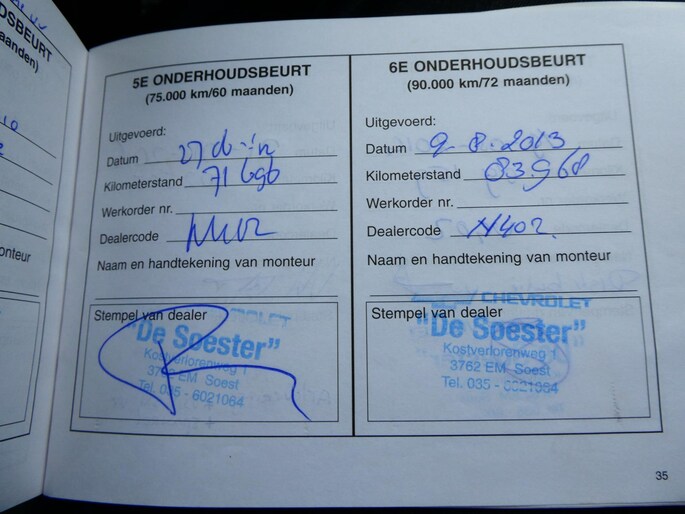 DSBEURT
aanden)
10
2
onteur
5E ONDERHOUDSBEURT
(75.000 km/60 maanden)
Uitgevoerd:
Datum
Kilometerstand 71696
Werkorder nr.
Dealercode
Naam en handtekening van monteur
Stempel van dealer
CHEVROLET
"De Soester"
Kostverlorenweg 1
3762 EM Soest
Tel. 035 - 6021064
6E ONDERHOUDSBEURT
(90.000 km/72 maanden)
Uitgevoerd:
Datum 9-8.2013
Kilometerstand 83968
Werkorder nr.
Dealercode N402
Naam en handtekening van monteur
CHEVROLET
Stempel van dealer
"De Soester"
Kostverlorenweg 1
3762 EM Soest
Tel. 035 - 6021064
35